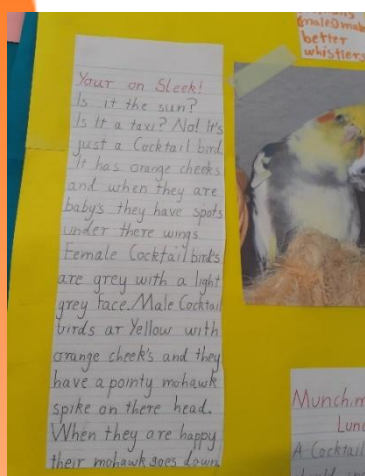 (males) make
better
whistlers
Your on Sleek!
Is it the sun?
Is It a taxi? No! It's
just a Cocktail bird
It has orange cheeks
and when they are
baby's they have spots
under there wings.
Female Cocktail bird's
are grey with a light
grey face. Male Cocktail
birds ar Yellow with
orange cheek's and they
have a pointy mohawk
spike on there head.
When they are happy
their mohawk goes down
Munchin
Lunc
A Cocktail